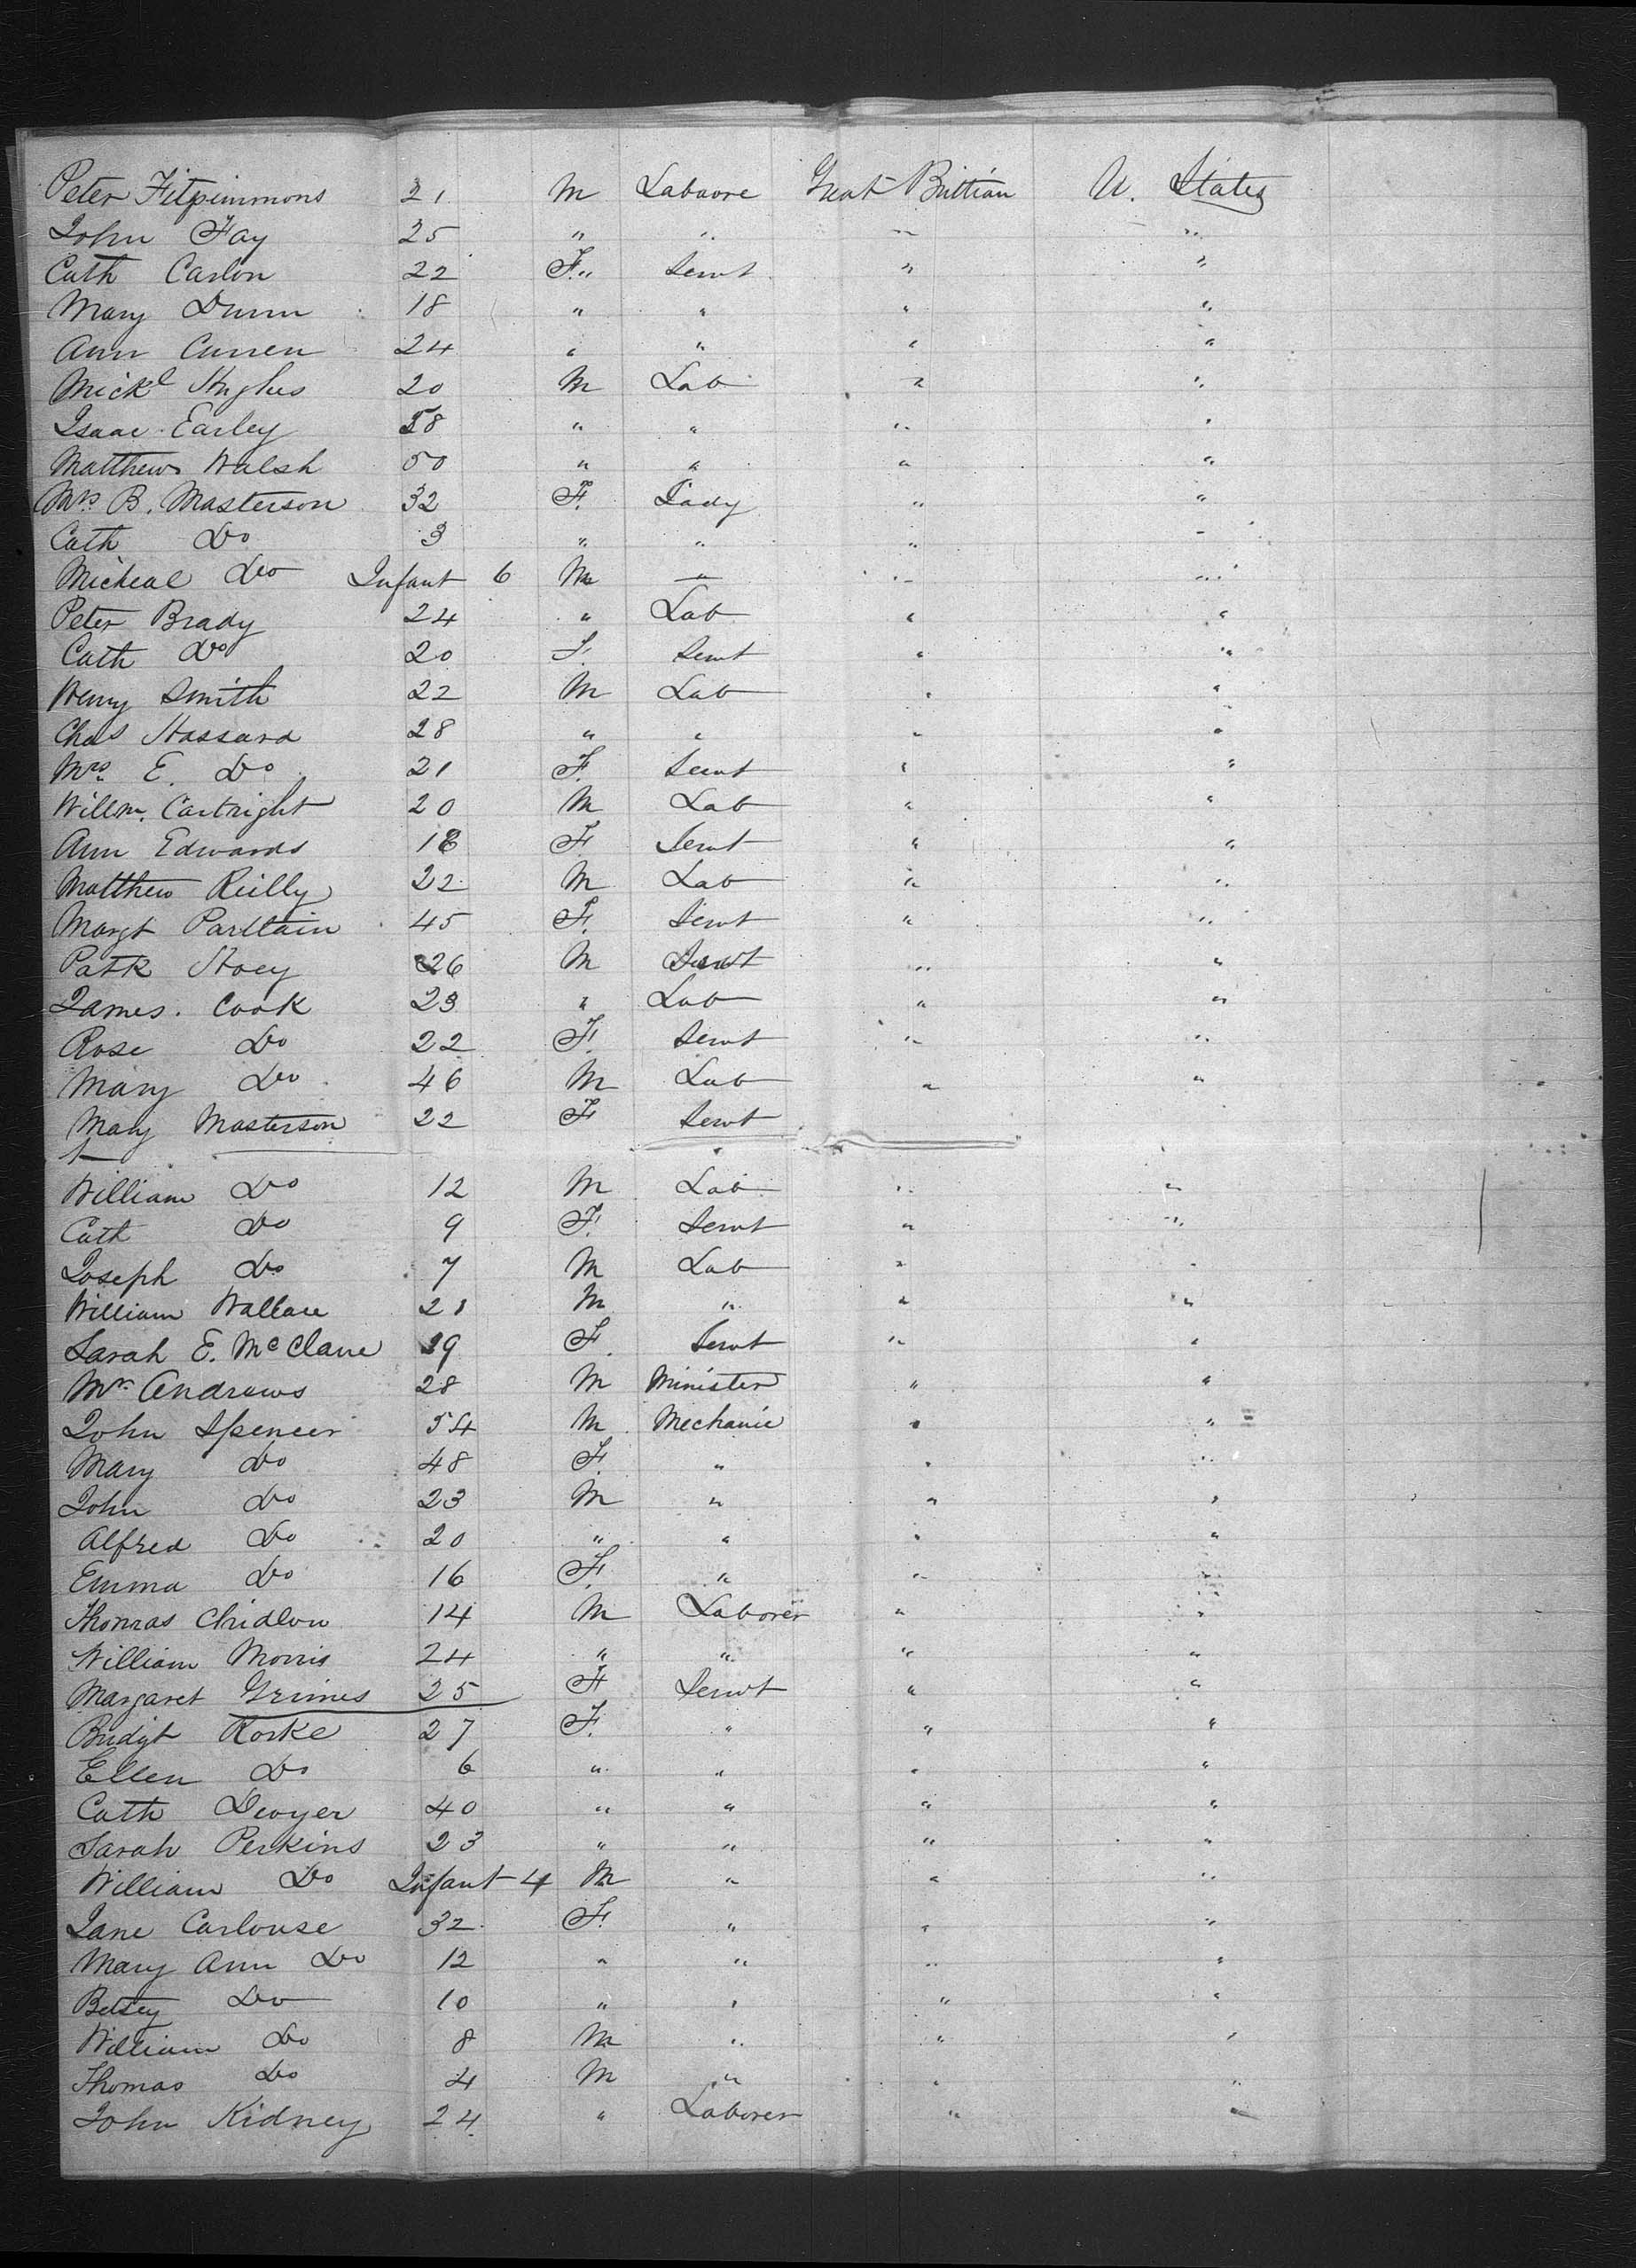 Peter Fitpimmons 21 M Labaore Great Brittian U. States
John Fay 25 " " " "
Cath Carlon 22 F " Servt " "
Mary Dunn 18 " " " "
Ann Curren 24 " " " "
Mickl Hughes 20 M Lab " "
Isaac Earley 58 " " " "
Matthew Walsh 50 " " " "
Mrs B. Masterson 32 F. Lady " "
Cath Do 3 " " " "
Micheal Do Infant 6 M " " "
Peter Brady 24 " Lab " "
Cath Do 20 F. Servt " "
Henry Smith 22 M Lab " "
Chas Hassard 28 " " " "
Mrs E. Do 21 F. Servt " "
Willm. Cartright 20 M Lab " "
Ann Edwards 18 F Servt " "
Matthew Reilly 22 M Lab " "
Margt Parttain 45 F. Servt " "
Patk Hoey 26 M Servt " "
James. Cook 23 " Lab " "
Rose Do 22 F. Servt " "
Mary Do 46 M Lab " "
Mary Masterson 22 F Servt
William Do 12 M Lab " "
Cath Do 9 F. Servt " "
Joseph Do 7 M Lab " "
William Wallace 21 M " " "
Sarah E. McClane 39 F. Servt " "
Mr Andrews 28 M Minister " "
John Spencer 54 M Mechanic " "
Mary Do 48 F. " " "
John Do 23 M " " "
Alfred Do 20 " " " "
Emma Do 16 F. " " "
Thomas Chidlow 14 M Laborer " "
William Morris 24 " " " "
Margaret Grimes 25 F Servt " "
Bridgt Rorke 27 F. " " "
Ellen Do 6 " " " "
Cath Dwyer 40 " " " "
Sarah Perkins 23 " " " "
William Do Infant 4 M " " "
Jane Carlouse 32 F. " " "
Mary Ann Do 12 " " " "
Betsey Do 10 " " " "
William Do 8 M " " "
Thomas Do 4 M " " "
John Kidney 24 " Laborer " "